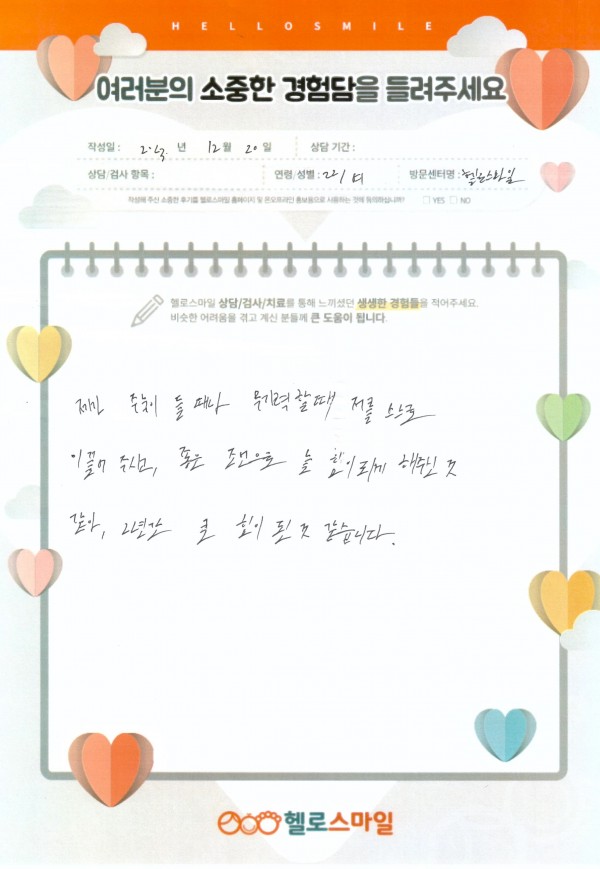 HELLOSMILE
여러분의 소중한 경험담을 들려주세요
작성일 : 년 12월 20일 상담 기간 :
상담/검사 항목 : 연령/성별 : 22/여 방문센터명 : 헬로스마일
작성해 주신 소중한 후기를 헬로스마일 홈페이지 및 온오프라인 홍보용으로 사용하는 것에 동의하십니까? YES NO
헬로스마일 상담/검사/치료를 통해 느끼셨던 생생한 경험들을 적어주세요.
비슷한 어려움을 겪고 계신 분들께 큰 도움이 됩니다.
제가 주눅이 들 때나 무기력할때 저를 스스로
이끌어 주시고, 좋은 조언으로 늘 힘이되게 해주신 것
같아, 2년간 큰 힘이 된 것 같습니다.
헬로스마일